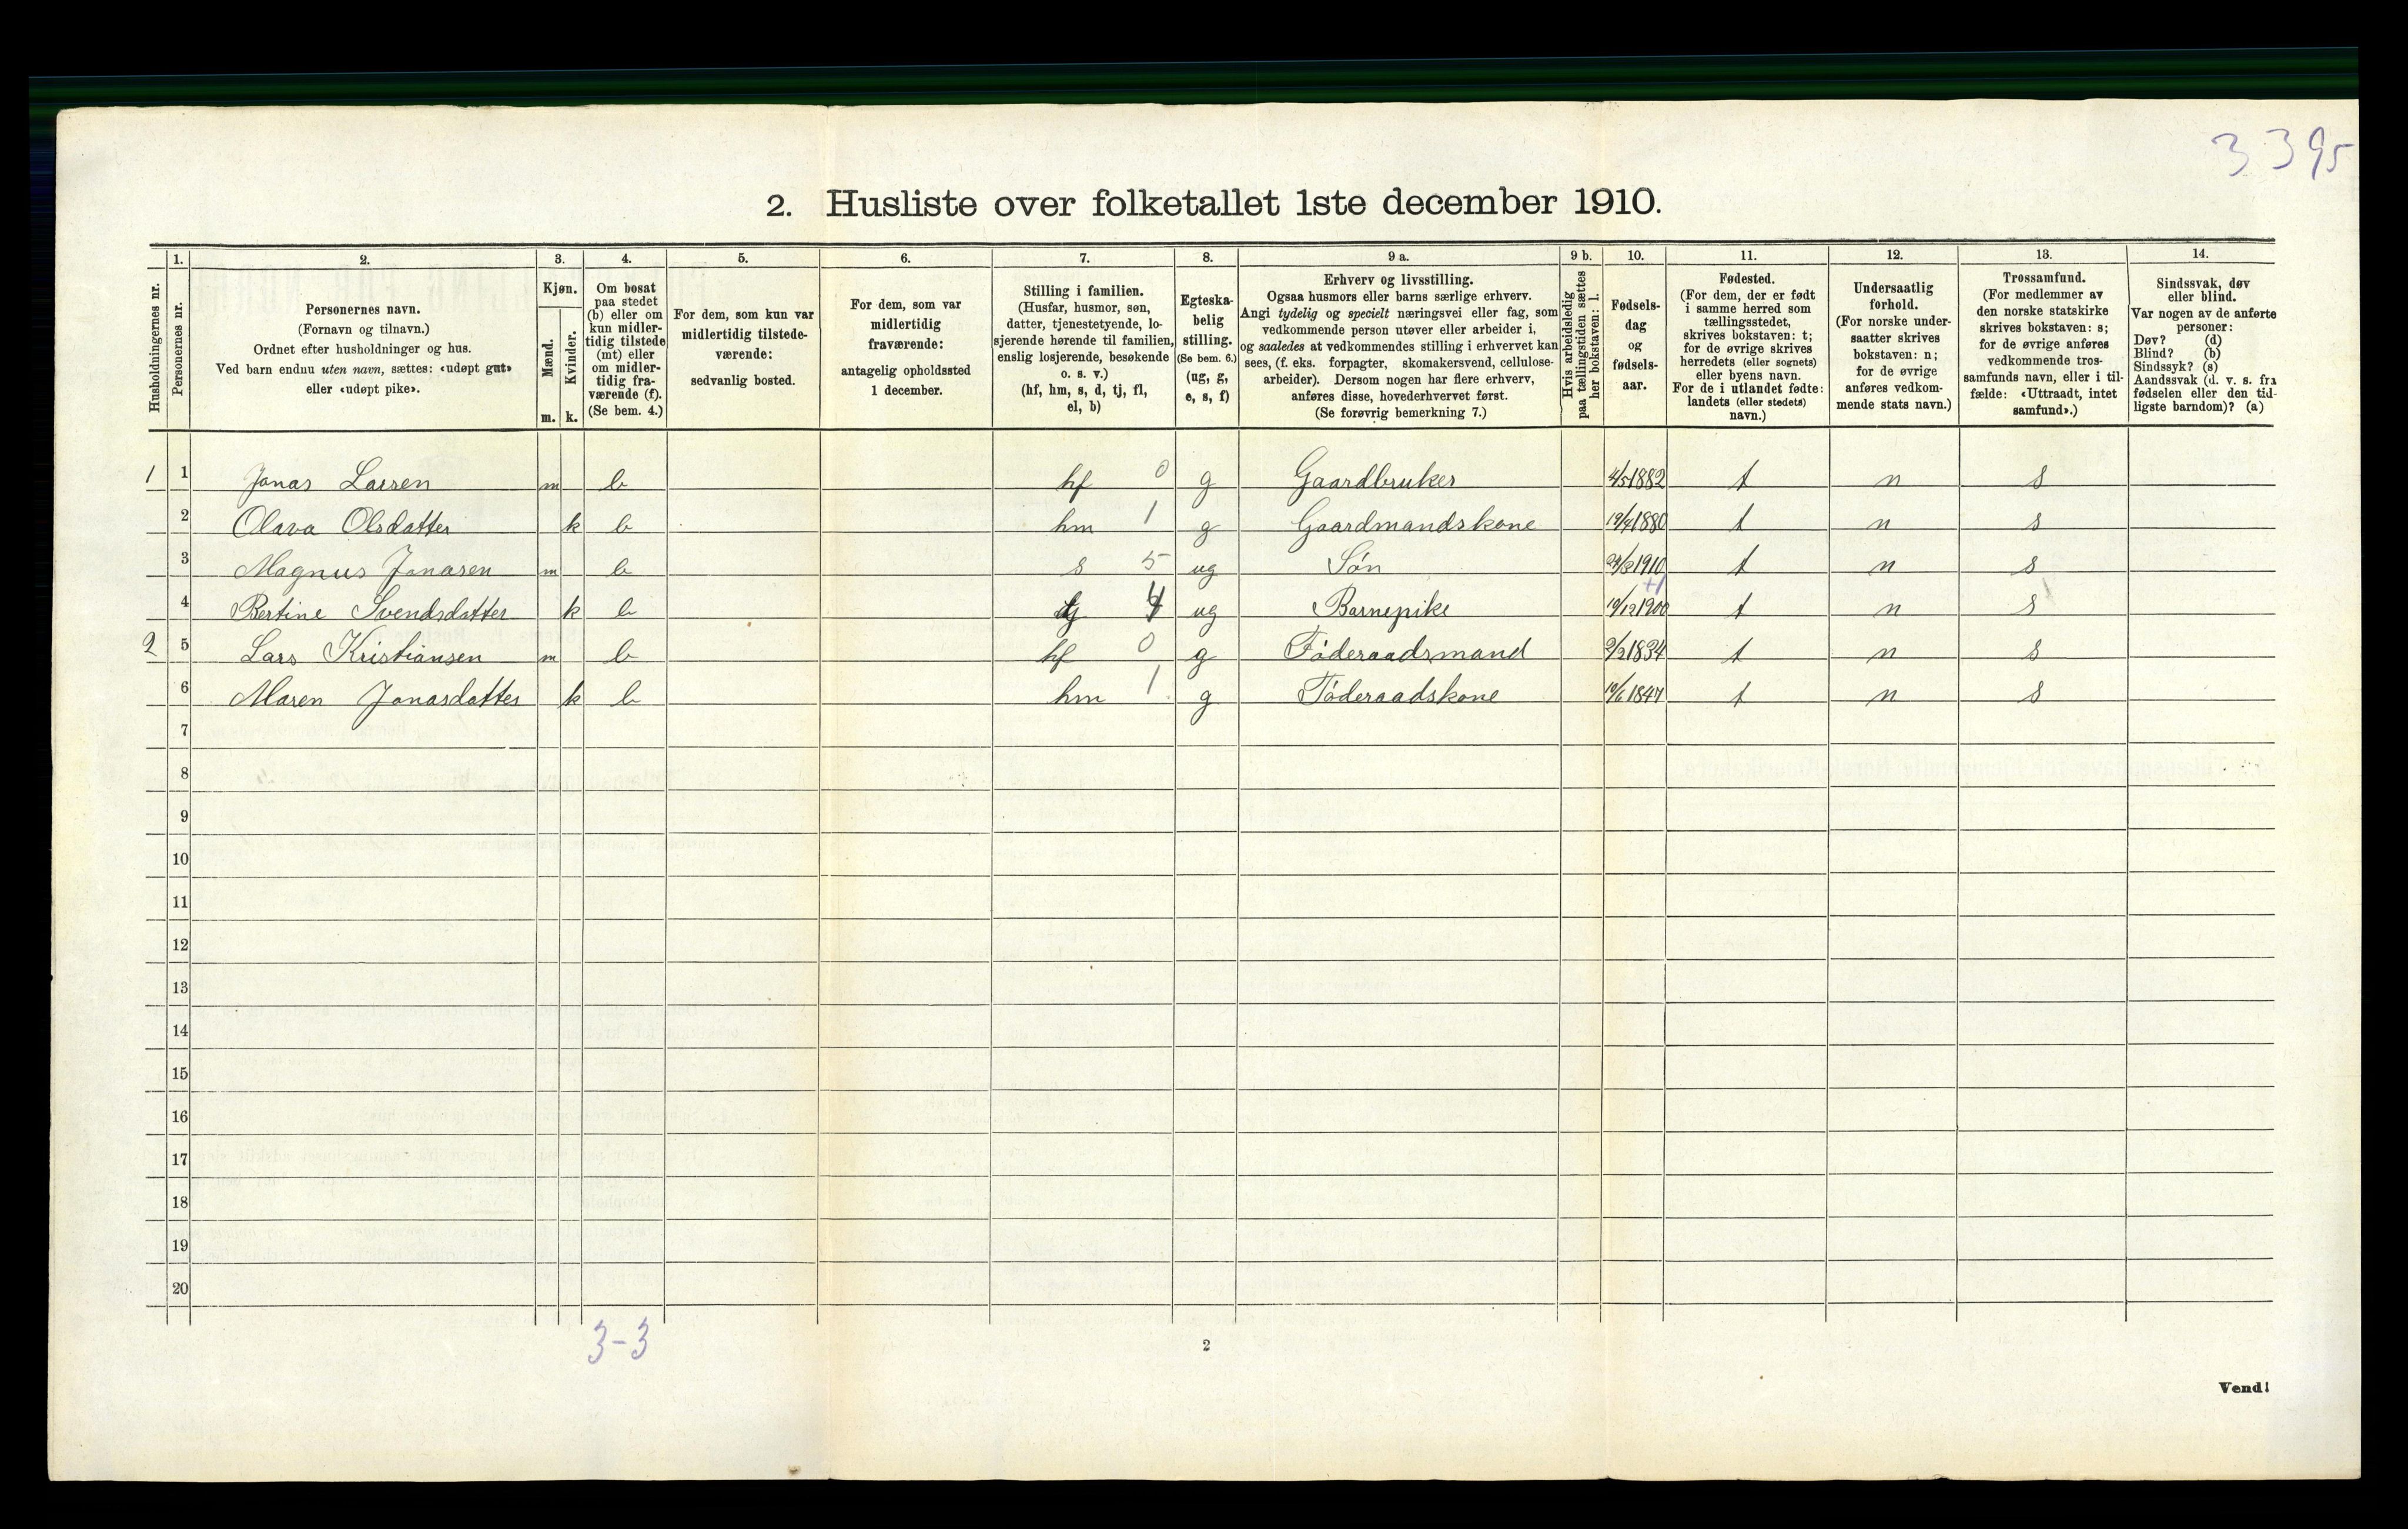 3 395
2. Husliste over folketallet 1ste december 1910.
Husholdningernes nr.
1.
Personernes nr.
2.
Personernes navn.
(Fornavn og tilnavn.)
Ordnet efter husholdninger og hus.
Ved barn endnu uten navn, sættes: «udøpt gut»
eller «udøpt pike».
3.
Kjøn.
Mænd.
m.
Kvinder.
k.
4.
Om bosat
paa stedet
(b) eller om
kun midler-
tidig tilstede
(mt) eller
om midler-
tidig fra-
værende (f).
(Se bem. 4.)
5.
For dem, som kun var
midlertidig tilstede-
værende:
sedvanlig bosted.
6.
For dem, som var
midlertidig
fraværende:
antagelig opholdssted
1 december.
7.
Stilling i familien.
(Husfar, husmor, søn,
datter, tjenestetyende, lo-
sjerende hørende til familien,
enslig losjerende, besøkende
o. s. v.)
(hf, hm, s, d, tj, fl,
el, b)
8.
Egteska-
belig
stilling.
(Se bem. 6.)
(ug, g,
e, s, f)
9 a.
Erhverv og livsstilling.
Ogsaa husmors eller barns særlige erhverv.
Angi tydelig og specielt næringsvei eller fag, som
vedkommende person utøver eller arbeider i,
og saaledes at vedkommendes stilling i erhvervet kan
sees, (f. eks. forpagter, skomakersvend, cellulose-
arbeider). Dersom nogen har flere erhverv,
anføres disse, hovederhvervet først.
(Se forøvrig bemerkning 7.)
9 b.
Hvis arbeidsledig
paa tællingstiden sættes
her bokstaven: l.
10.
Fødsels-
dag
og
fødsels-
aar.
11.
Fødested.
(For dem, der er født
i samme herred som
tællingsstedet,
skrives bokstaven: t;
for de øvrige skrives
herredets (eller sognets)
eller byens navn.
For de i utlandet fødte:
landets (eller stedets)
navn.)
12.
Undersaatlig
forhold.
(For norske under-
saatter skrives
bokstaven: n;
for de øvrige
anføres vedkom-
mende stats navn.)
13.
Trossamfund.
(For medlemmer av
den norske statskirke
skrives bokstaven: s;
for de øvrige anføres
vedkommende tros-
samfunds navn, eller i til-
fælde: «Uttraadt, intet
samfund».)
14.
Sindssvak, døv
eller blind.
Var nogen av de anførte
personer:
Døv? (d)
Blind? (b)
Sindssyk? (s)
Aandssvak (d. v. s. fra
fødselen eller den tid-
ligste barndom)? (a)
1 1 Jonas Larsen m b hf 0 g Gaardbruker 4/5 1882 t n s
2 Olava Olsdatter k b hm 1 g Gaardmandskone 19/4 1880 t n s
3 Magnus Jonasen m b s 5 ug Søn 1910 t n s
+1
4 Bertine Svendsdatter k b tj 4 ug Barnepike 10/12 1900 t n s
2 5 Lars Kristiansen m b hf 0 g Føderaadsmand 1834 t n s
6 Maren Jonasdatter k b hm 1 g Føderaadskone 10/6 1847 t n s
7
8
9
10
11
12
13
14
15
16
17
18
19
20
3-3
2
Vend!